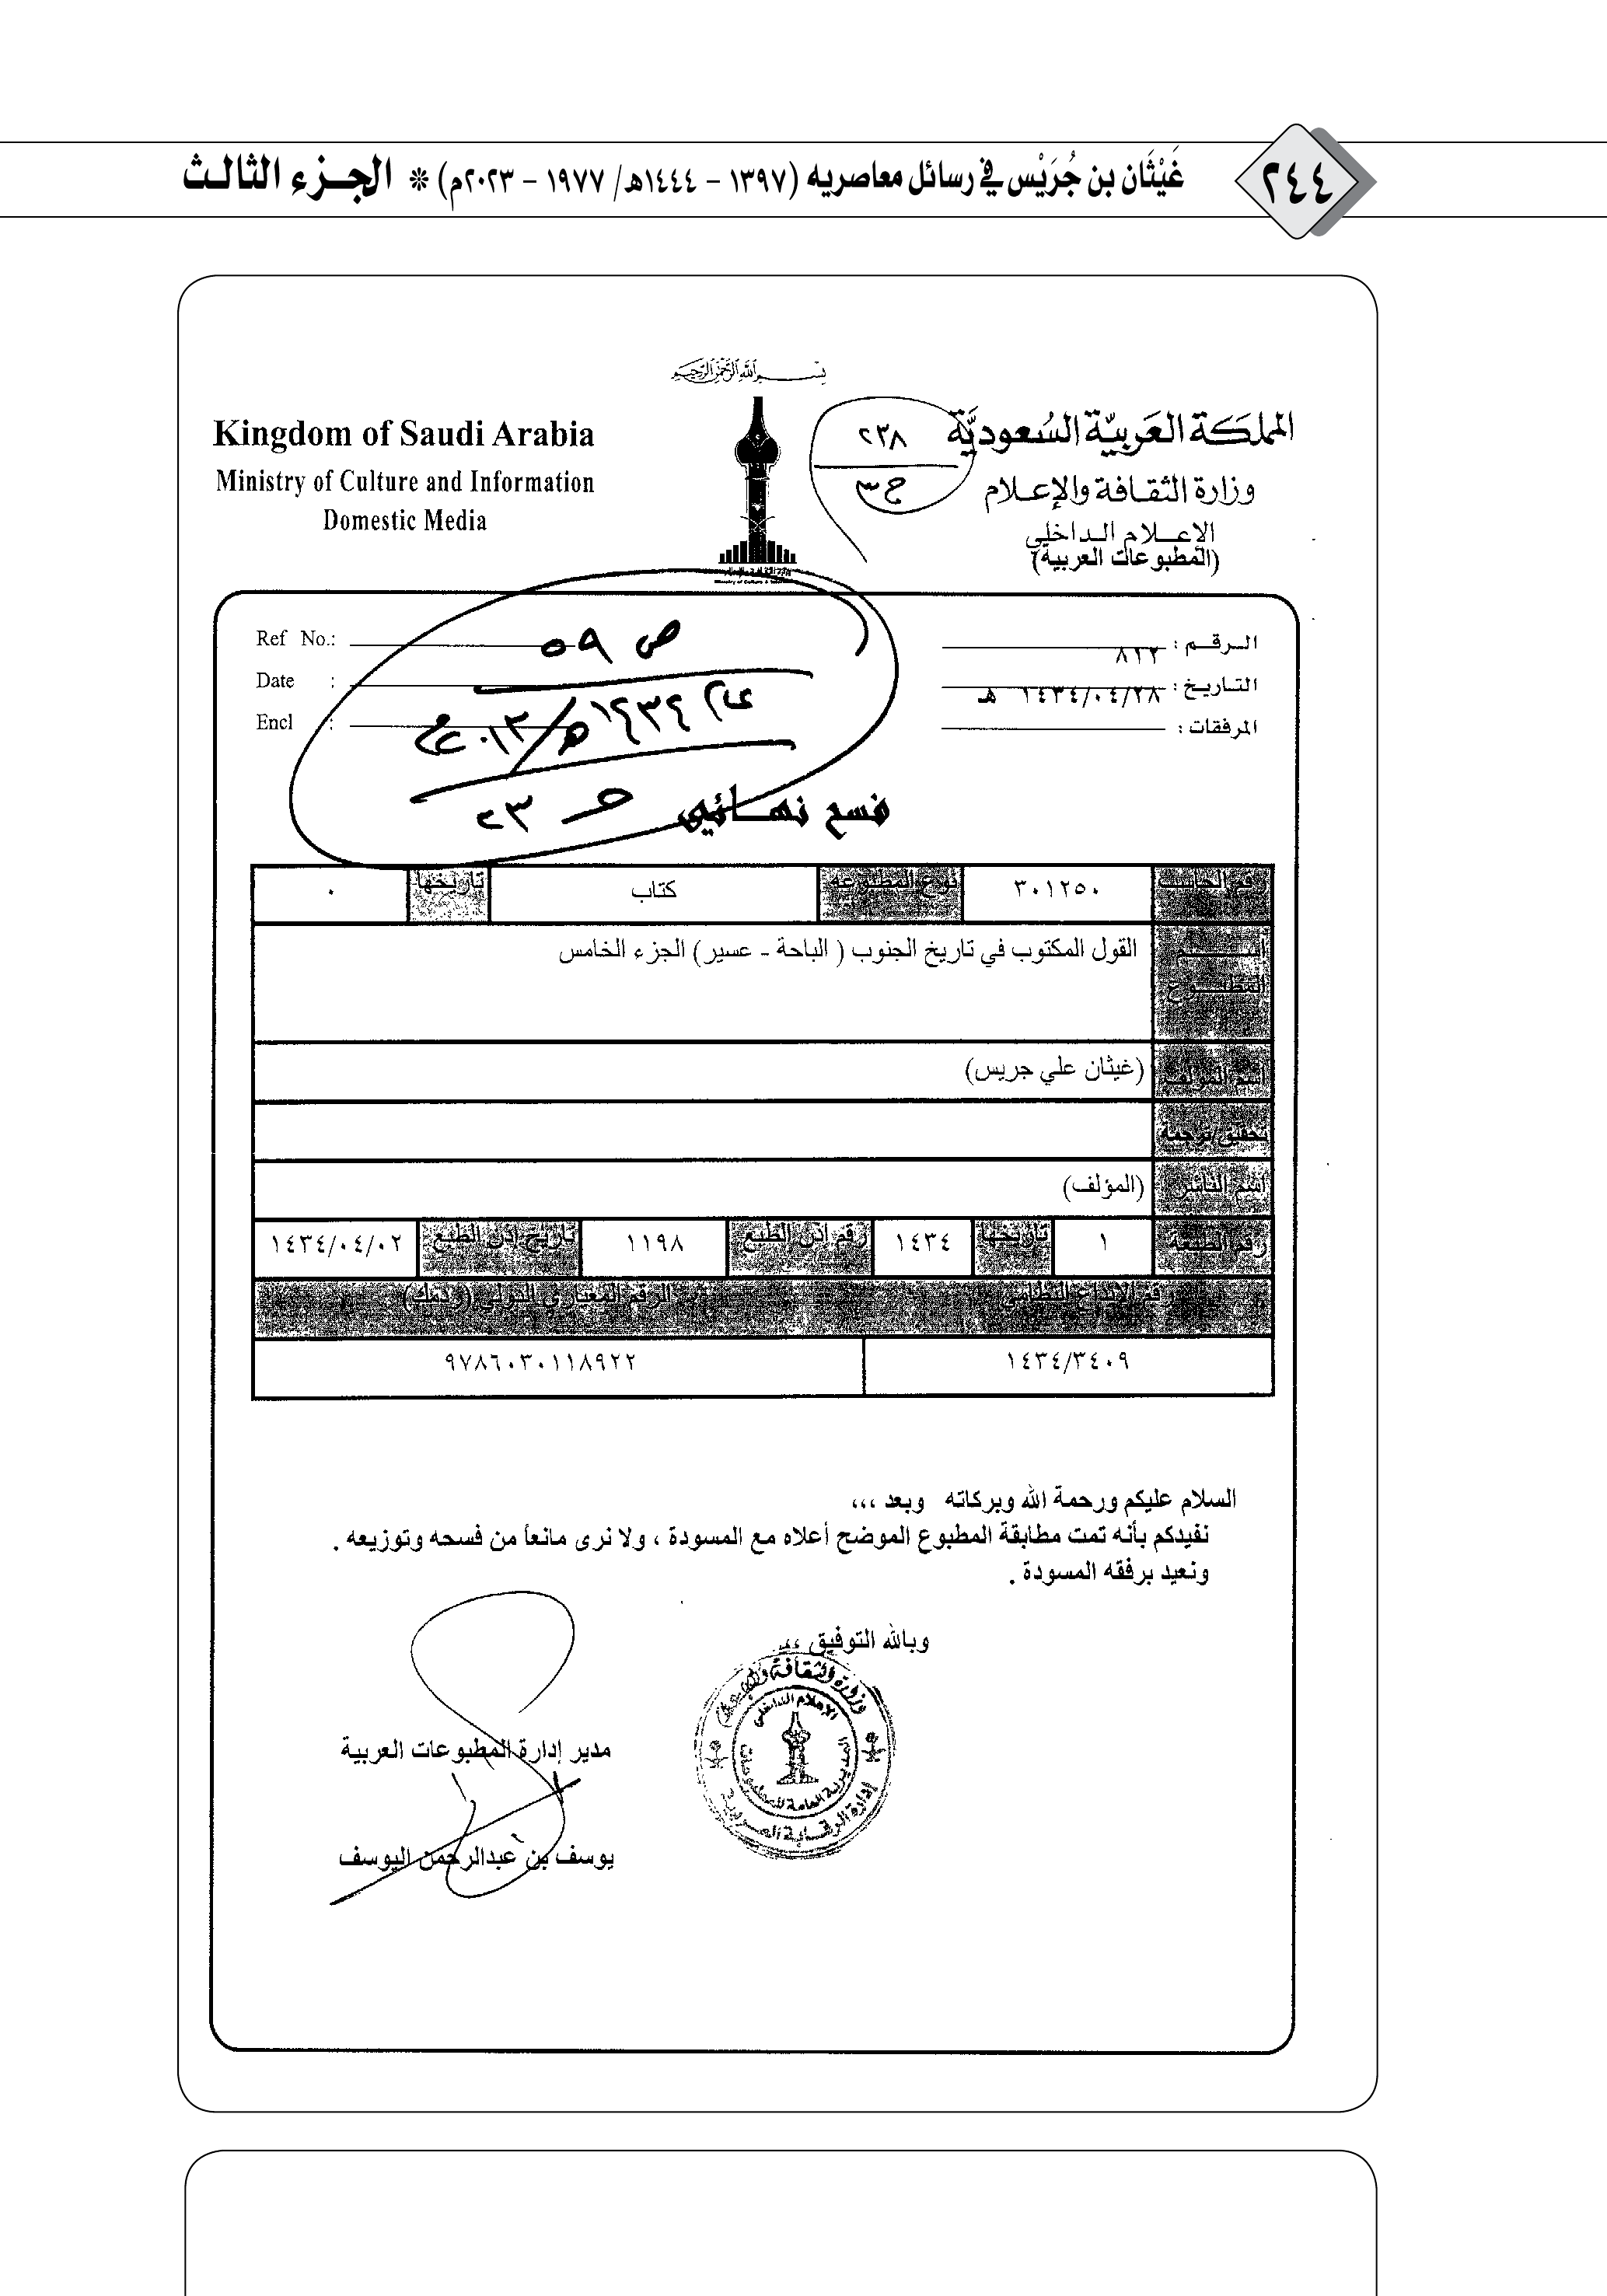 ٢٤٤
غَيْثَان بن جُرَيْس في رسائل معاصريه (١٣٩٧ – ١٤٤٤هـ/ ١٩٧٧ – ٢٠٢٣م) * الجـزء الثالث
بسم الله الرحمن الرحيم
المملكة العربية السعودية
وزارة الثقافة والإعلام
الإعلام الداخلي
(المطبوعات العربية)
Kingdom of Saudi Arabia
Ministry of Culture and Information
Domestic Media
٢٣٨
ج٣
الرقم : ٨٢٢
التاريخ : ١٤٣٤/٠٤/٢٨ هـ
المرفقات :
Ref No.:
Date :
Encl :
ص ٥٩
عام ١٤٣٤هـ/٢٠١٣م
حـ ٢٣
فسح نهائي
رقم الحاسب ٣٠١٢٥٠ نوع المطبوعه كتاب تاريخها ٠
اسم المطبوع القول المكتوب في تاريخ الجنوب ( الباحة - عسير) الجزء الخامس
اسم المؤلف (غيثان علي جريس)
تحقيق/ترجمة
اسم الناشر (المؤلف)
رقم الطبعة ١ تاريخها ١٤٣٤ رقم اذن الطبع ١١٩٨ تاريخ اذن الطبع ١٤٣٤/٠٤/٠٢
رقم الايداع النظامي الرقم المعياري الدولي (ردمك)
١٤٣٤/٣٤٠٩ ٩٧٨٦٠٣٠١١٨٩٢٢
السلام عليكم ورحمة الله وبركاته وبعد ،،،
نفيدكم بأنه تمت مطابقة المطبوع الموضح أعلاه مع المسودة ، ولا نرى مانعاً من فسحه وتوزيعه .
ونعيد برفقه المسودة .
وبالله التوفيق ،،،
وزارة الثقافة والإعلام
الإعلام الداخلي
المديرية العامة للمطبوعات
إدارة الرقابة العربية
مدير إدارة المطبوعات العربية
يوسف بن عبدالرحمن اليوسف